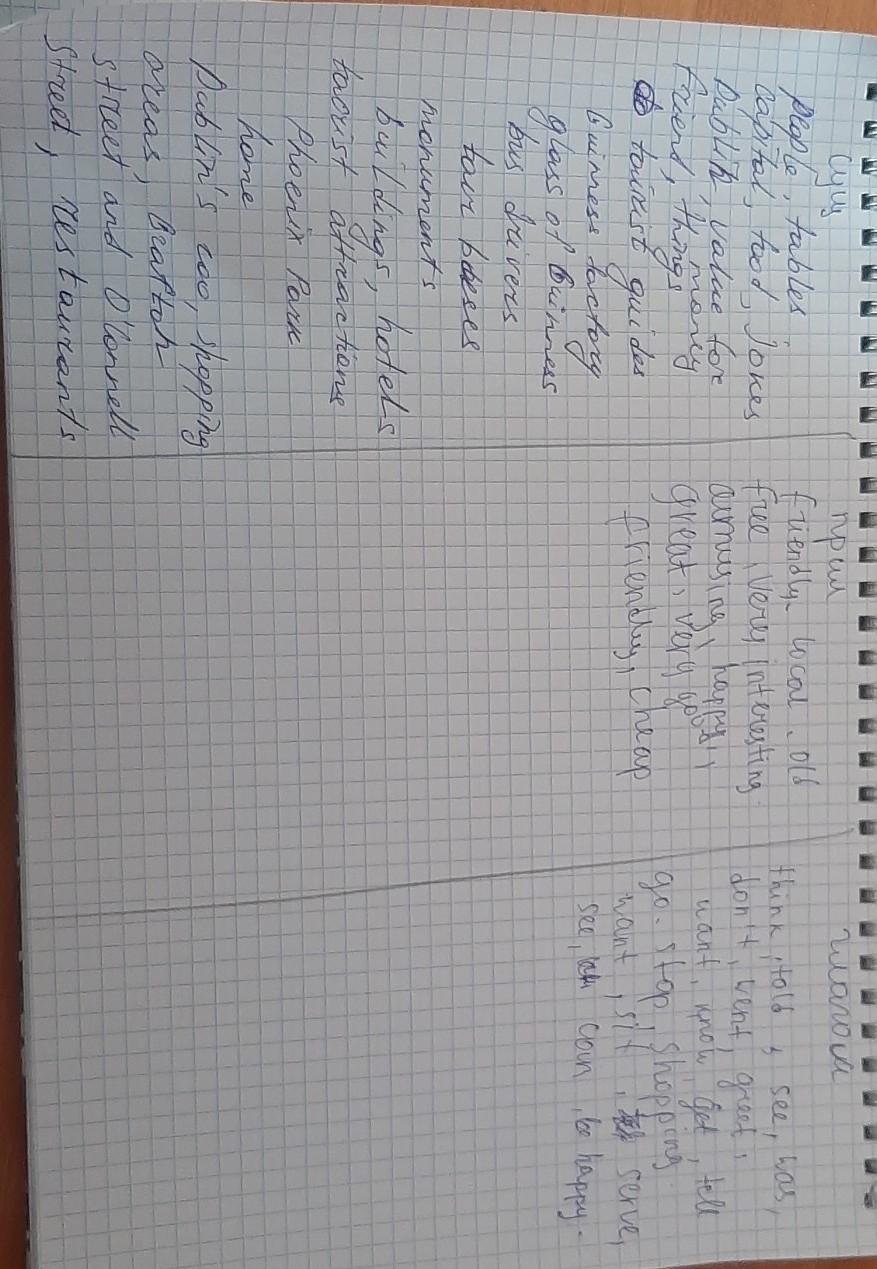 сущ
people, tables
capital, food, jokes
Dublin, value for
friend, things money
tourist guides
Guinness factory
glass of Guinness
bus drivers
tour buses
monuments
buildings, hotels
tourist attractions
Phoenix Park
home
Dublin's zoo, shopping
areas,
street and O'Connell
street, restaurants
прил
friendly, local, old
free, very interesting
amusing, happy,
great, very good,
friendly, cheap
глаголы
think, told, see, was,
don't, went, greet,
want, know, get, tell
go. stop, shopping
want, sit, serve,
see, can, be happy.